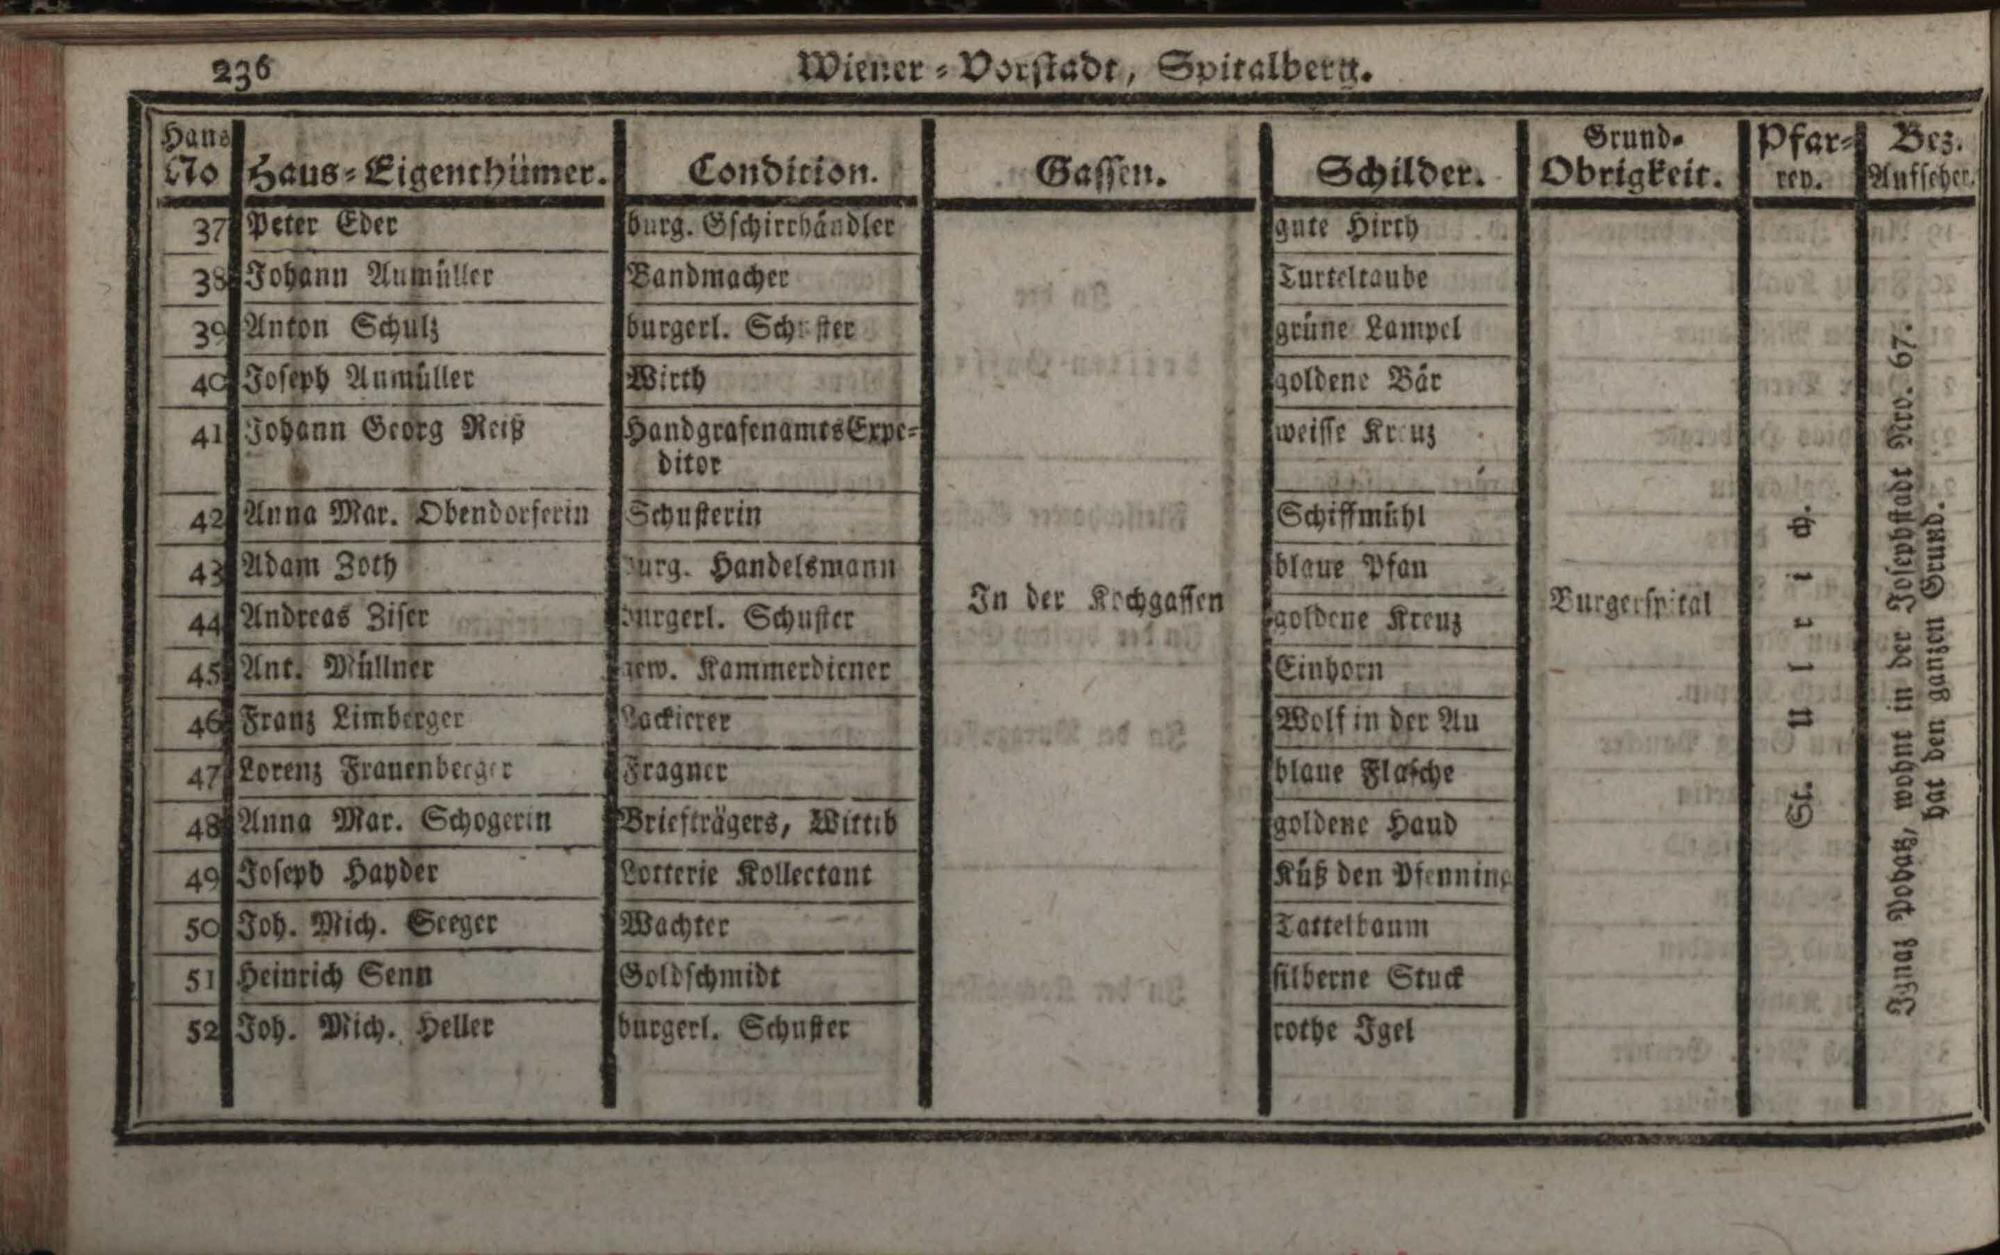 236 Wiener-Vorstadt, Spitalberg.
Haus No Haus-Eigenthümer. Condition. Gassen. Schilder. Grund-Obrigkeit. Pfar-rey. Bez. Aufseher.
37 Peter Eder burg. Gschirrhändler gute Hirth
38 Johann Aumüller Bandmacher Turteltaube
39 Anton Schulz burgerl. Schuster grüne Lampel
40 Joseph Aumüller Wirth goldene Bär
41 Johann Georg Reiß HandgrafenamtsExpe-
ditor weisse Kreuz
42 Anna Mar. Obendorferin Schusterin Schiffmühl
43 Adam Zoth burg. Handelsmann blaue Pfau
In der Kochgassen Burgerspital
44 Andreas Ziser burgerl. Schuster goldene Kreuz
45 Ant. Müllner gew. Kammerdiener Einhorn
46 Franz Limberger Lackierer Wolf in der Au
47 Lorenz Frauenberger Fragner blaue Flasche
48 Anna Mar. Schogerin Briefträgers, Wittib goldene Hand
49 Joseph Hayder Lotterie Kollectant Küß den Pfenning
50 Joh. Mich. Seeger Wachter Tattelbaum
51 Heinrich Senn Goldschmidt silberne Stuck
52 Joh. Mich. Heller burgerl. Schuster rothe Igel
St. Ulrich.
Ignaz Pobatz, wohnt in der Josephstadt Nro. 67.
hat den ganzen Grund.